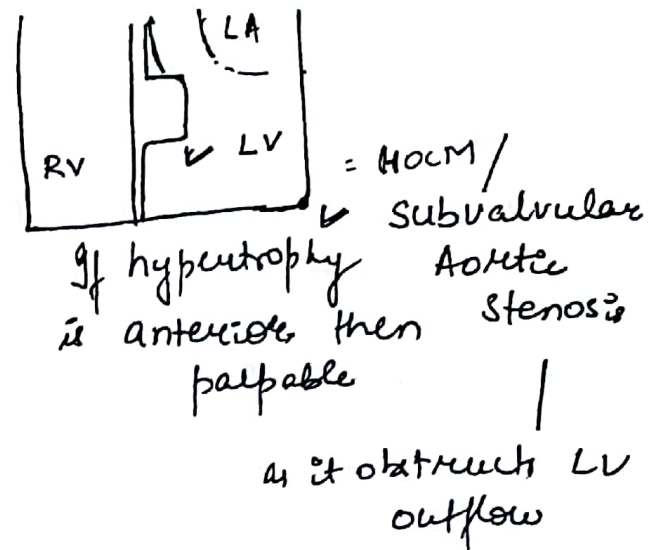 LA
RV
LV
= HOCM /
Subvalvular
Aortic
Stenosis
If hypertrophy
is anterior then
palpable
as it obstructs LV
outflow